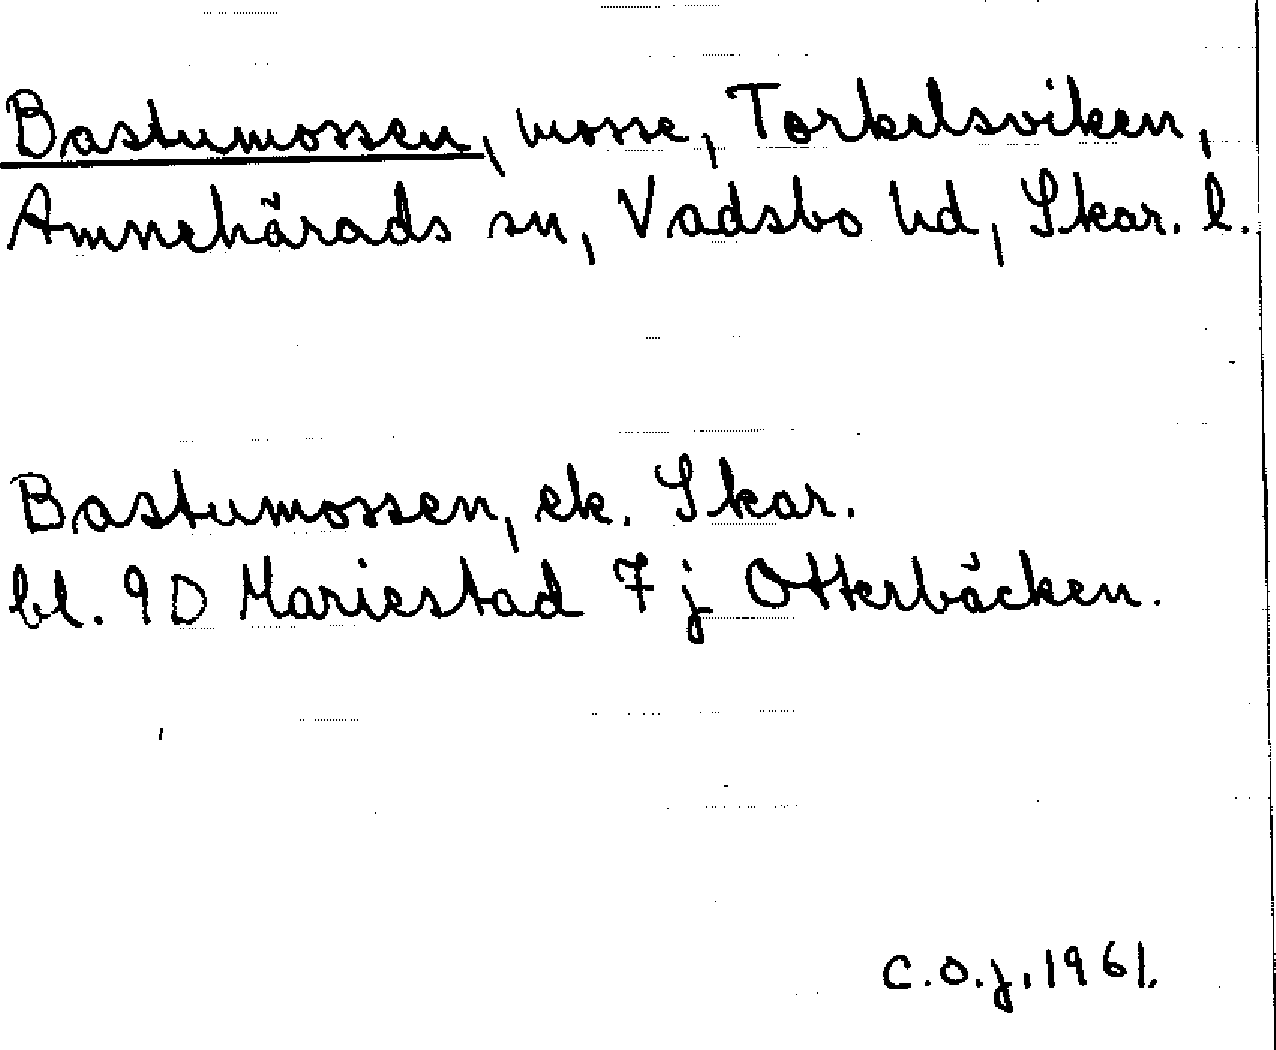 Bastumossen, mosse, Torkelsviken,
Amnehärads sn, Vadsbo hd, Skar. l.
Bastumossen, ek. Skar.
bl. 9D Mariestad 7 j Otterbäcken.
C.O.J. 1961.